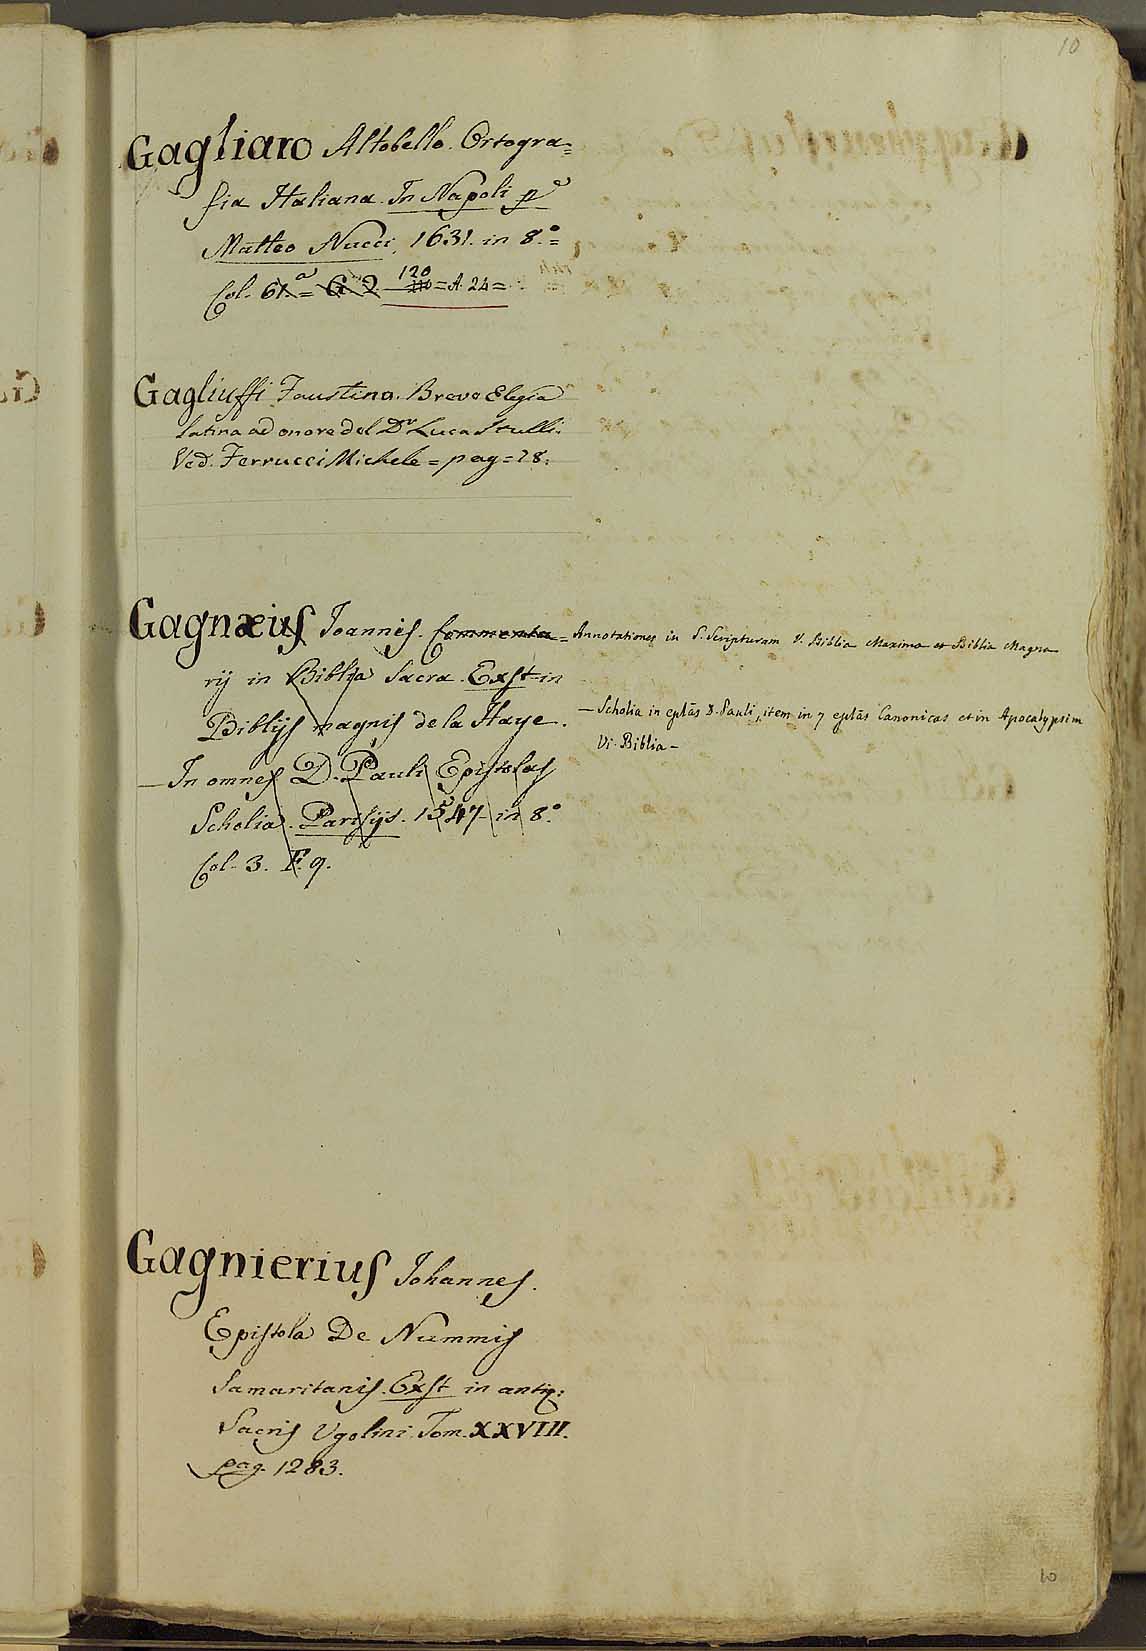 10
Gagliaro Altobello. Ortogra=
fia Italiana. In Napoli p
Matteo Nucci. 1631. in 8.º=
Col. 61.ª = G. 2. 120 = A. 24 =
Gagliuffi Faustino. Breve Elegia
latina ad onore del Dr Luca Stulli.
Ved. Ferrucci Michele = pag = 28.
Gagnæius Joannes. Commenta= Annotationes in S. Scripturam V. Biblia Maxima et Biblia Magna
rij in Biblia Sacra. Exst in
Biblijs magnis de la Haye.
— Scholia in eplãs D. Pauli, item in 7 eplãs Canonicas et in Apocalypsim
Vi. Biblia —
— In omnes D. Pauli Epistolas
Scholia. Parisijs. 1547. in 8.º
Col. 3. F. 9.
Gagnierius Johannes.
Epistola De Nummis
Samaritanis. Exst in antiq:
Sacris Ugolini. Tom. XXVIII.
pag. 1283.
10